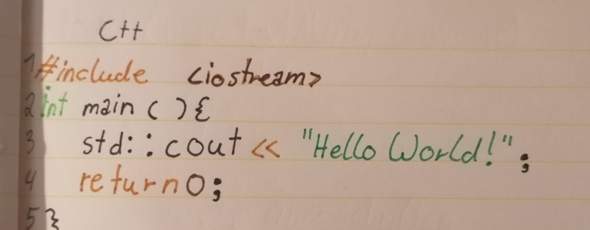 C++
1 #include <iostream>
2 int main ( ) {
3 std::cout << "Hello World!";
4 return 0;
5 }